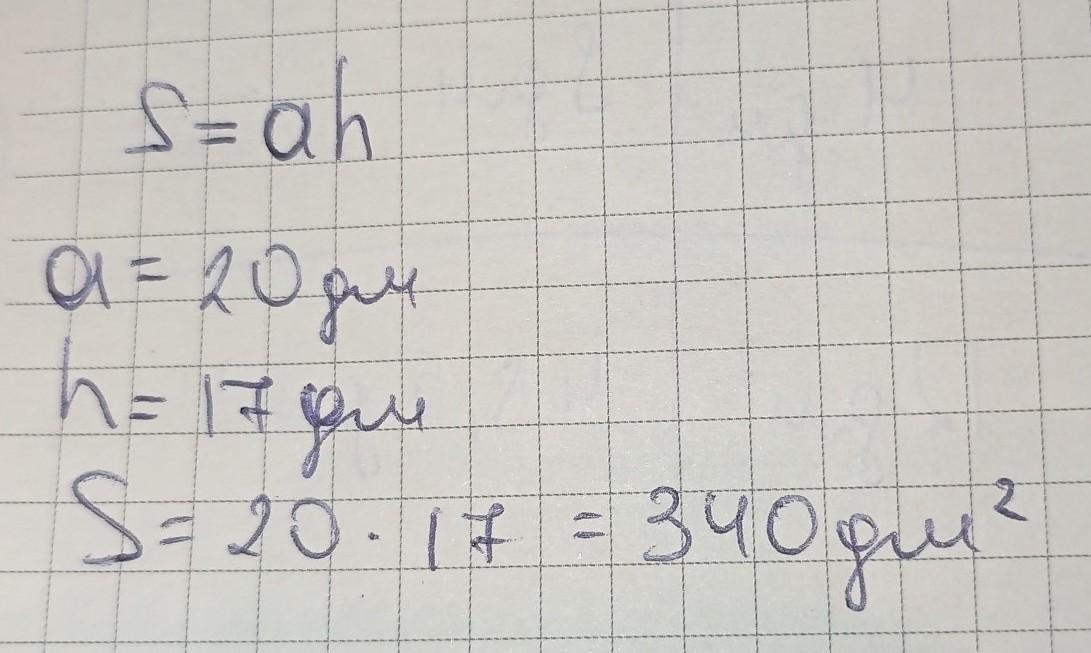 S = ah
a = 20 дм
h = 17 дм
S = 20 · 17 = 340 дм²